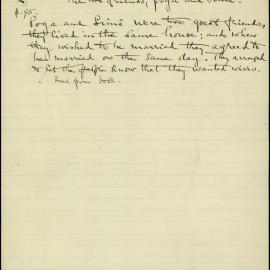 The two friends, Poga and
p. 95.
Poga and Sini were two great friends,
they lived in the same house; and when
they wished to be married they agreed to
be married on the same day. They arranged
to let the people know that they wanted wives.
Read from book.